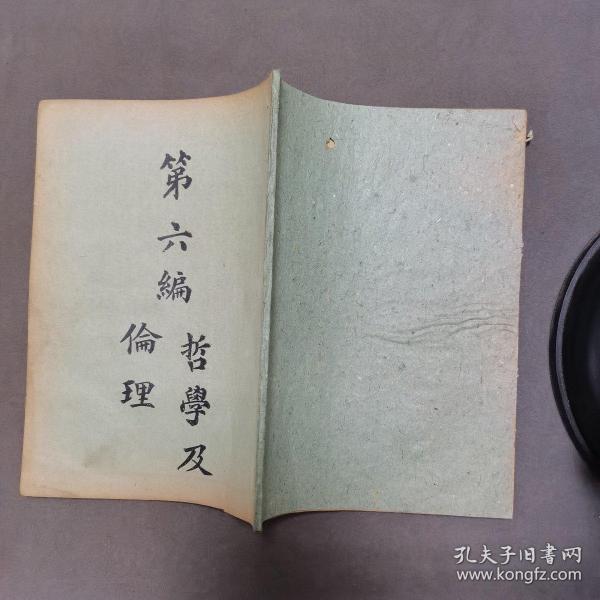 第六編
哲學及
倫理
孔夫子旧書网
www.kongfz.com